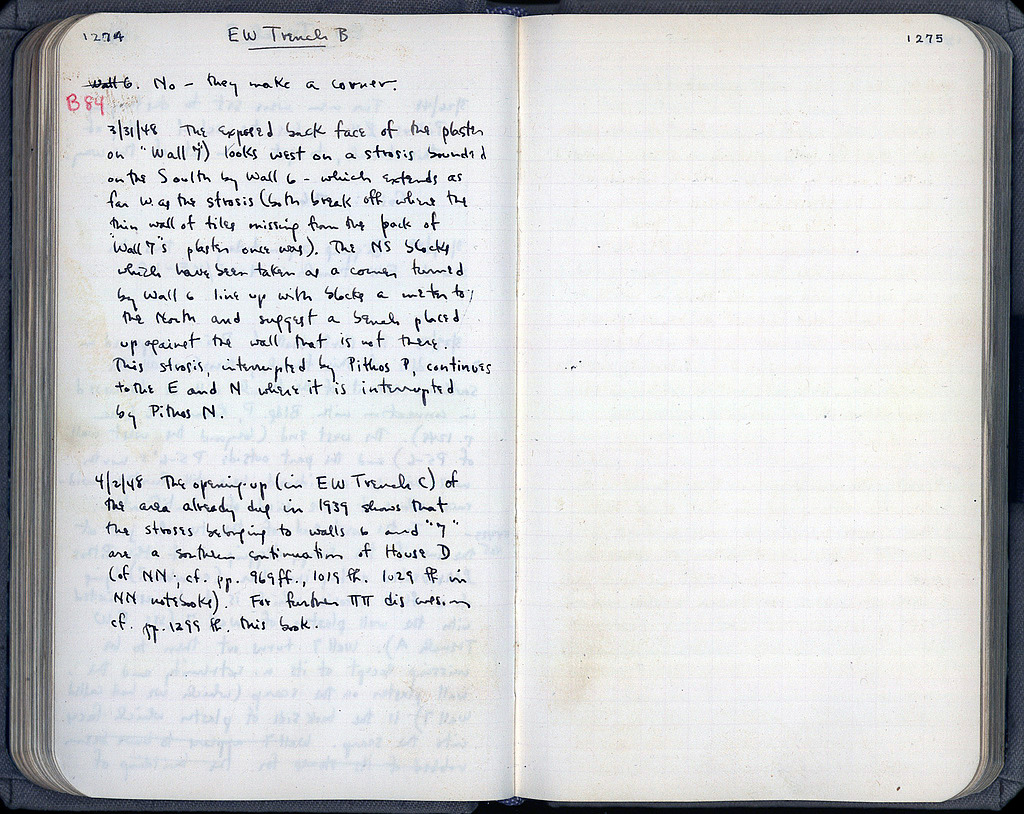 1274
EW Trench B
Wall 6. No – they make a corner.
B 84
3/31/48 The exposed back face of the plaster
on "Wall 7") looks west on a strosis bounded
on the South by Wall 6 – which extends as
far W as the strosis (both break off where the
thin wall of tiles missing from the back of
"Wall 7"'s plaster once was). The NS blocks
which have been taken as a corner turned
by Wall 6 line up with blocks a meter to
the North and suggest a bench placed
up against the wall that is not there.
This strosis, interrupted by Pithos P, continues
to the E and N where it is interrupted
by Pithos N.
4/2/48 The opening-up (in EW Trench C) of
the area already dug in 1939 shows that
the stroses belonging to walls 6 and "7"
are a southern continuation of House D
(of NN; cf. pp. 969 ff., 1019 ff. 1029 ff in
NN notebooks). For further ΠΠ discussion
cf. pp. 1299 ff. this book.
1275